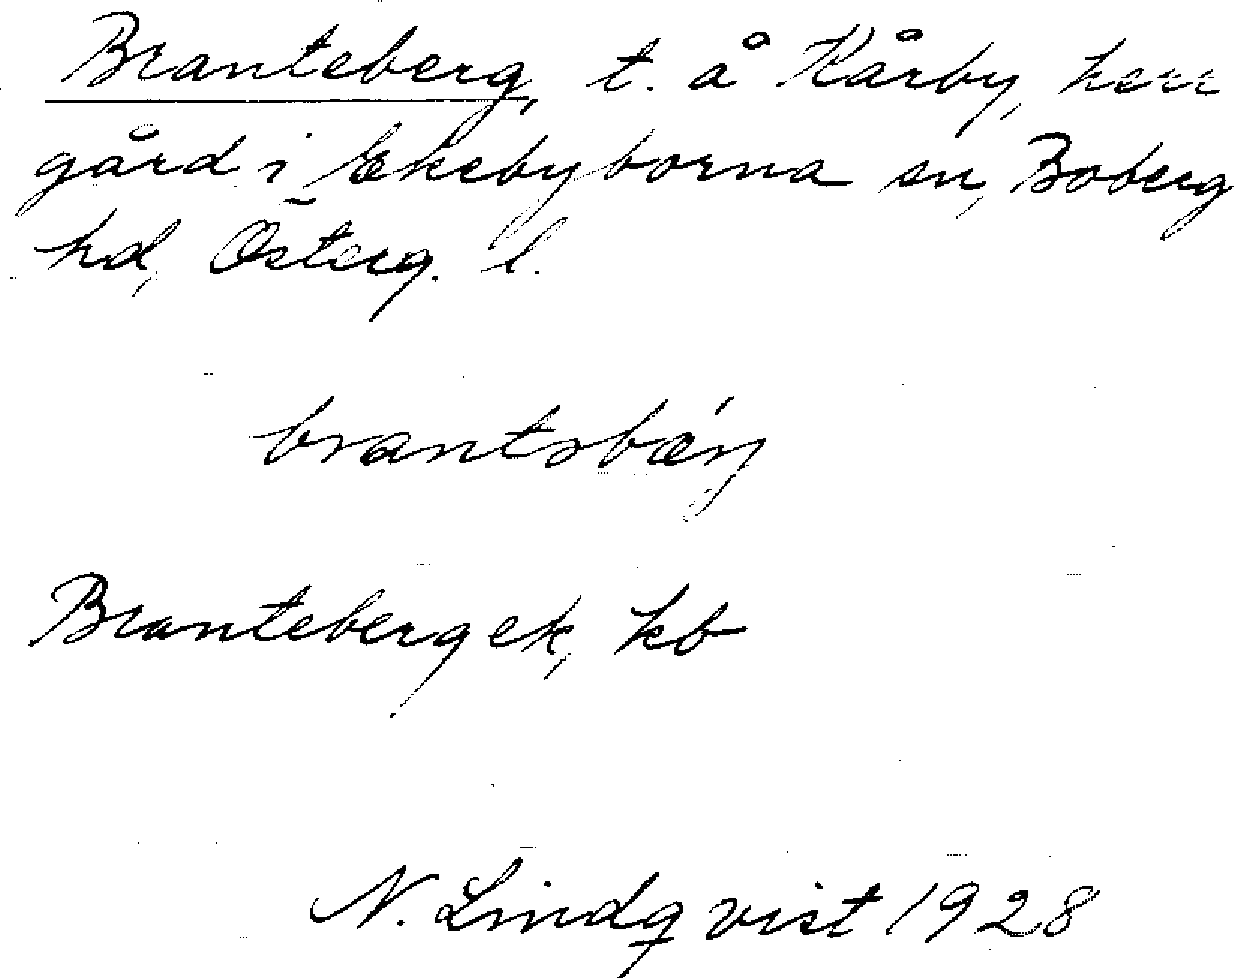 Branteberg, t. å Kårby, herr
gård i Ekebyborna sn, Boberg
hd, Österg. l.
Branteberg ek, kb
N. Lindqvist 1928